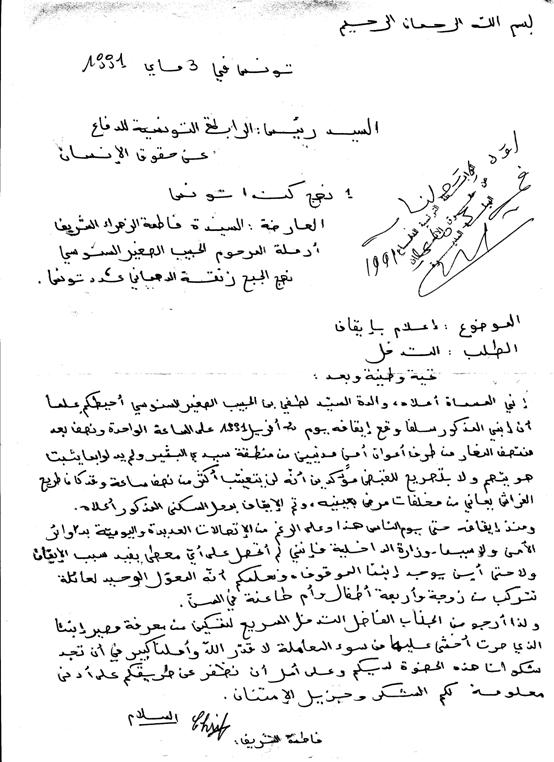 بسم الله الرحمان الرحيم
تونس في 3 ماي 1991
السيد رئيس: الرابطة التونسية للدفاع
عن حقوق الإنسان
1 نهج كندا تونس
العارضة: السيدة فاطمة الزهراء الشريف
أرملة المرحوم الحبيب الصغير السنوسي
نهج الجبع زنقة الدهماني عدد تونس.
1991
الموضوع: إعلام بإيقاف
الطلب: التدخل
تحية وطنية وبعد:
إني المسماة أعلاه، والدة السيد لطفي بن الحبيب الصغير السنوسي أحيطكم علما
أن إبني المذكور سلفا وقع إيقافه يوم أفريل 1991 على الساعة الواحدة ونصف بعد
منتصف النهار من طرف أعوان أمن مدنيين من منطقة سيدي البشير ولم يدلوا بما يثبت
هويتهم ولا بتصريح للقبض مؤكدين أنه لن يتغيب أكثر من نصف ساعة وقد كان طريح
الفراش يعاني من مخلفات مرض بعينيه، وتم الإيقاف بمحل السكنى المذكور أعلاه.
ومنذ إيقافه حتى يوم الناس هذا وعلى الرغم من الإتصالات العديدة واليومية بدوائر
الأمن ولا سيما وزارة الداخلية فإنني لم أتحصل على أي معطى يفيد سبب الإيقاف
ولا حتى أين يوجد إبننا الموقوف، ونعلمكم أنه المعوّل الوحيد لعائلة
تتركب من زوجة وأربعة أطفال وأم طاعنة في السنّ.
ولذا أرجو من الجناب الفاضل التدخل السريع لتمكين من معرفة مصير إبننا
الذي صرت أخشى عليه من سوء المعاملة لا قدّر الله وأملنا كبير في أن تجد
شكوانا هذه الحضوة لديكم وعلى أمل أن نظفر عن طريقكم على أدنى
معلومة لكم الشكر وجزيل الإمتنان.
والسلام
فاطمة الشريف.